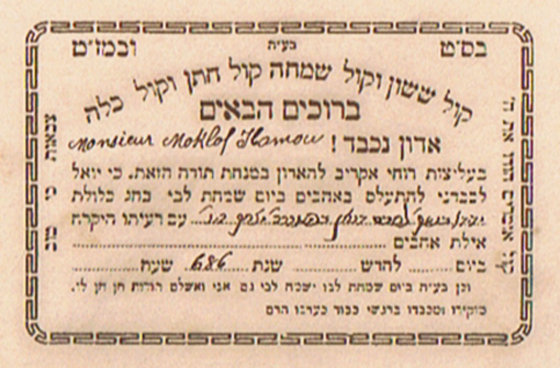 בס״ט בע״ה ובמז״ט
קול ששון וקול שמחה קול חתן וקול כלה
ברוכים הבאים
אדון נכבד! Monsieur Moklof Hamou
בעליצות רוחי אקריב להאדון במנחת תורה הזאת. כי יואל
לכבדני להתעלם באהבים ביום שמחת לבי בחג כלולת
עם רעיתו היקרה
אילת אהבים
ביום לחדש שנת 686 שעת
וכן בע״ה ביום שמחת לבו ישכח לבי גם אני ואשלם תודות חן חן לו.
מוקירו ומכבדו ברגשי כבוד כערכו הרם
קול אומרים הודו את ה׳
צבאות כי טוב